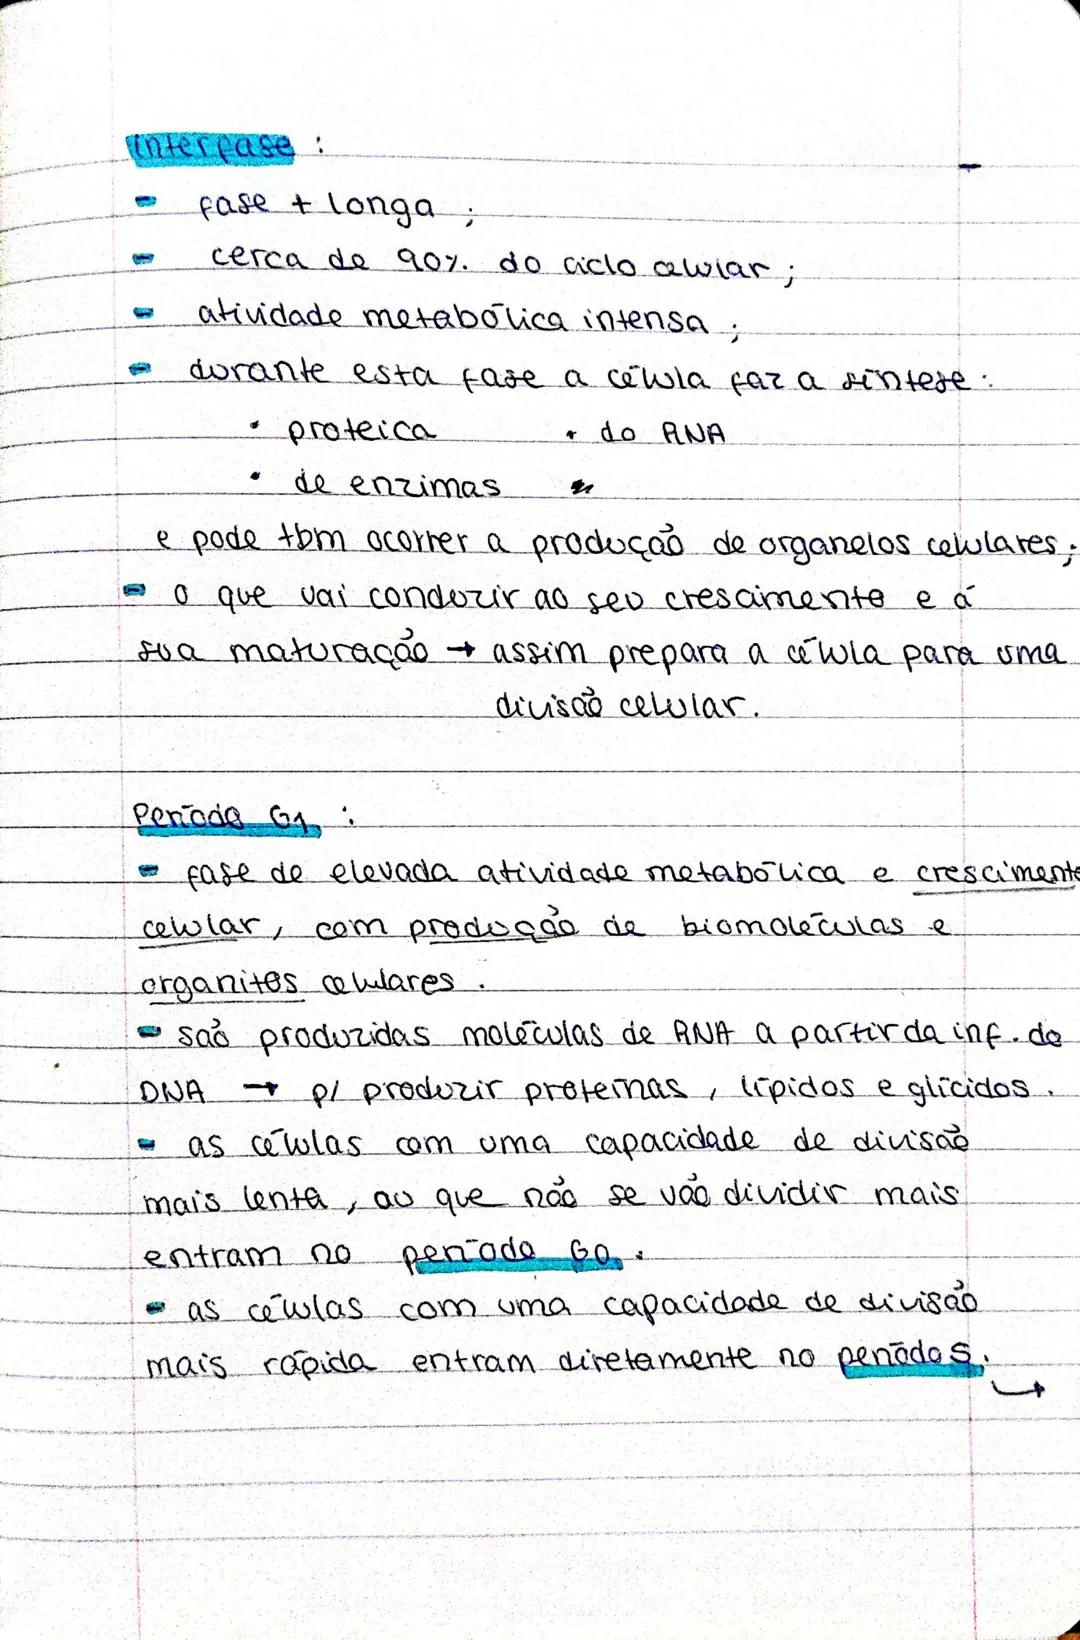 Interfase :
- fase + longa ;
- cerca de 90% do ciclo celular ;
- atividade metabólica intensa ;
- durante esta fase a célula faz a síntese :
• proteica • do RNA
• de enzimas
e pode tbm ocorrer a produção de organelos celulares ;
- o que vai conduzir ao seu crescimento e á
sua maturação → assim prepara a célula para uma
divisão celular.
Período G1 :
- fase de elevada atividade metabólica e crescimento
celular, com produção de biomoléculas e
organitos celulares .
- são produzidas moléculas de RNA a partir da inf. do
DNA → p/ produzir proteínas , lípidos e glícidos .
- as células com uma capacidade de divisão
mais lenta , ou que não se vão dividir mais
entram no período G0 .
- as células com uma capacidade de divisão
mais rápida entram diretamente no período S.